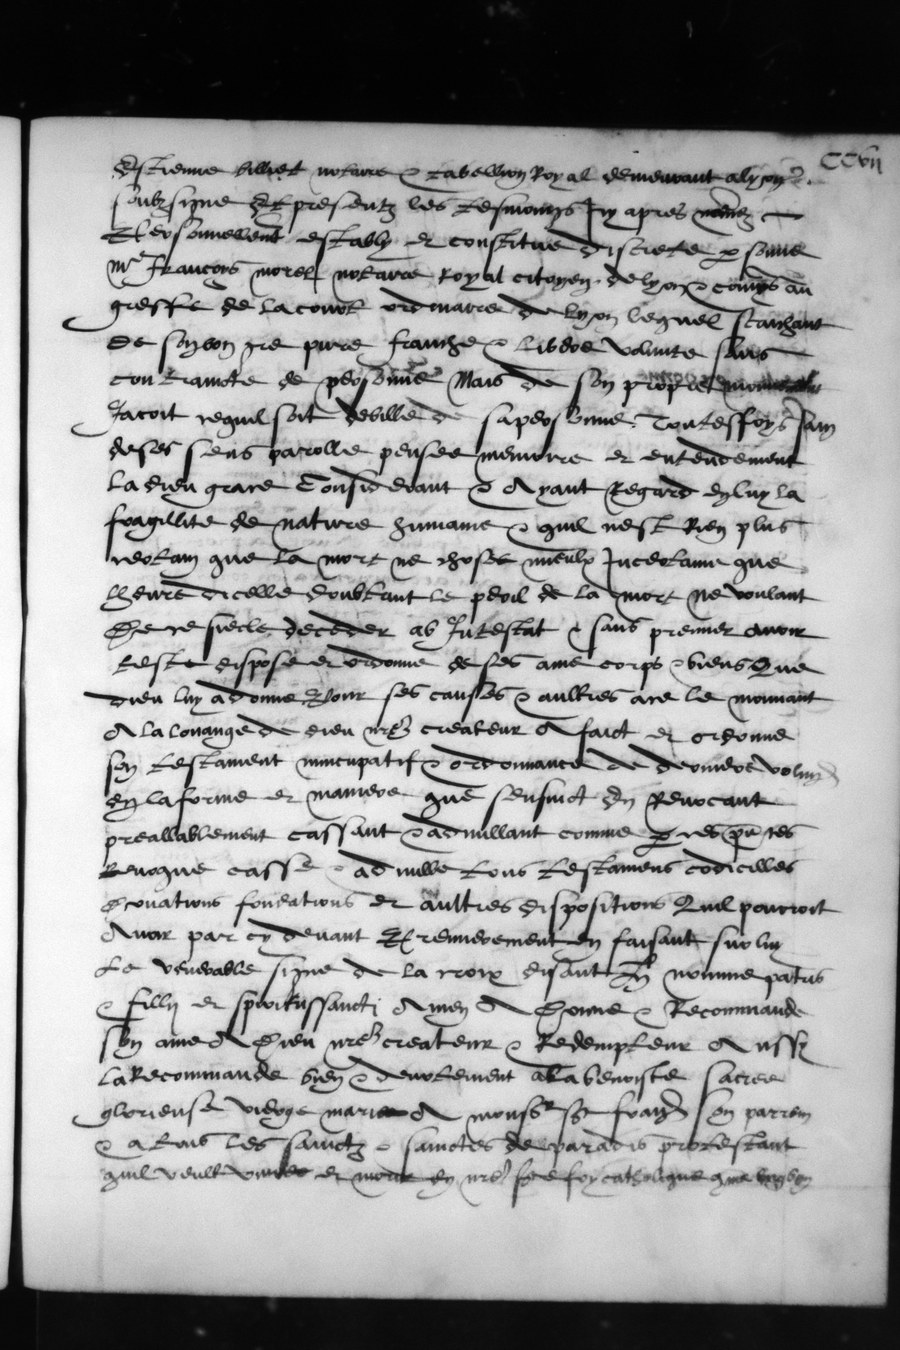 CCvii
Estienne billiet notaire & tabellion Royal demeurant a lyon
soubzsigne Et presentz les tesmoings Icy apres nommez
Personnellemt estably et constitue discrete personne
Me Francoys morel notaire royal citoyen de lyon & comys au
greffe de la court ordinaire de lyon lequel saichant
De son bon gre pure franche & libere volunte sans
contraincte de personne Mais de son propre
Jacoit ce quil soit debille de sa personne Toutesfoys sain
de ses sens parrolle pensee memoire et entendement
La dieu grace Considerant & Ayant Regard en luy la
fragillite de nature humaine & quil nest Rien plus
certain que la mort ne chose mieulx Incertaine que
lheure dicelle doubtant le peril de la mort ne voulant
De ce siecle decedder ab Intestat & sans premier avoir
teste dispose et ordonne de ses ame corps & biens Que
dieu luy a donne Pour ses causes & aultres a ce le mouvant
A la louange de dieu nre createur A faict et ordonne
son testament nuncupatif & ordonnance de derniere
En la forme et maniere que sensuict En Revocant
preallablement cassant & adnullant comme par ces pntes
Revoque casse & adnulle tous testamens codicilles
Donations fondations et aultres dispositions Quil pourroit
Avoir par cy devant Et premierement en faisant sur luy
Le venerable signe de la croix disant In nomine patris
& fillii et spiritussancti Amen A Donne & Recommande
Son ame A Dieu nre createur & Redempteur Aussy
La Recommande bien & devotement a la benoiste sacree
glorieuse vierge marie A monsr st francoys son parrein
& a tous les sainctz & sainctes de paradis protestant
quil veult vivre et morir en nre ste foy catholique